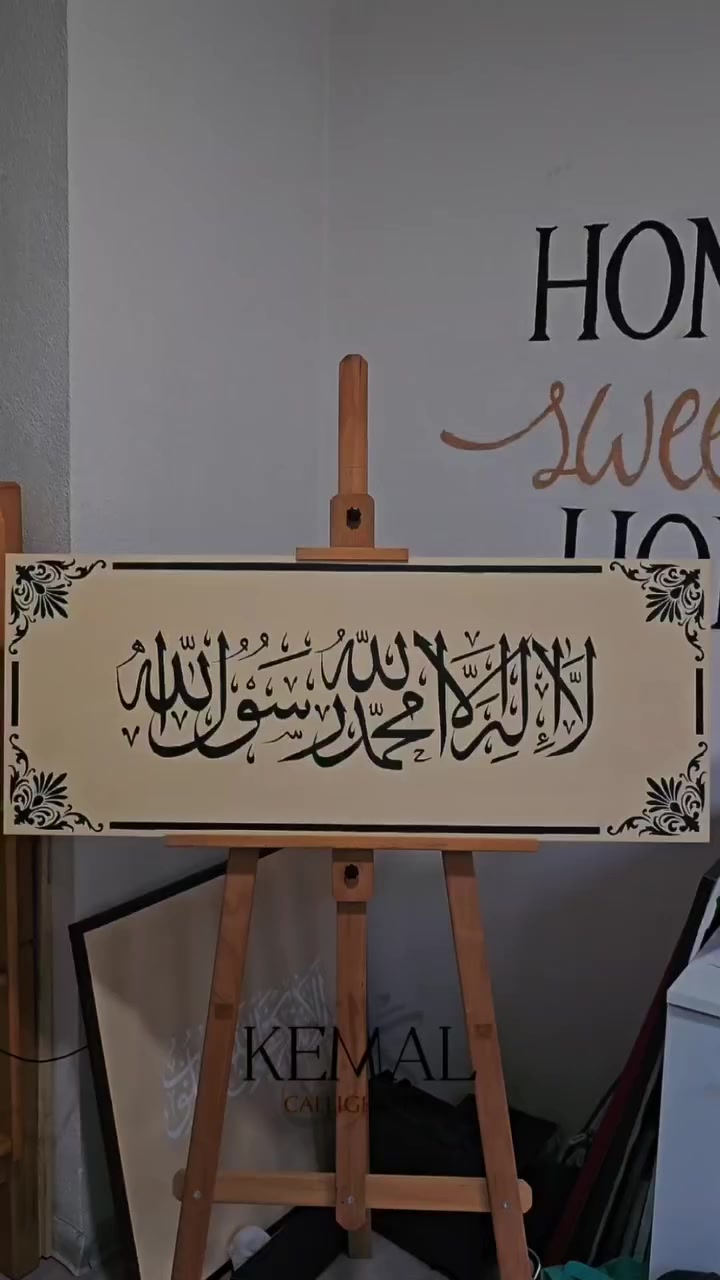 HOM
swee
HO
لَا إِلَهَ إِلَّا اللّٰه مُحَمَّد رَسُولُ اللّٰه
KEMAL